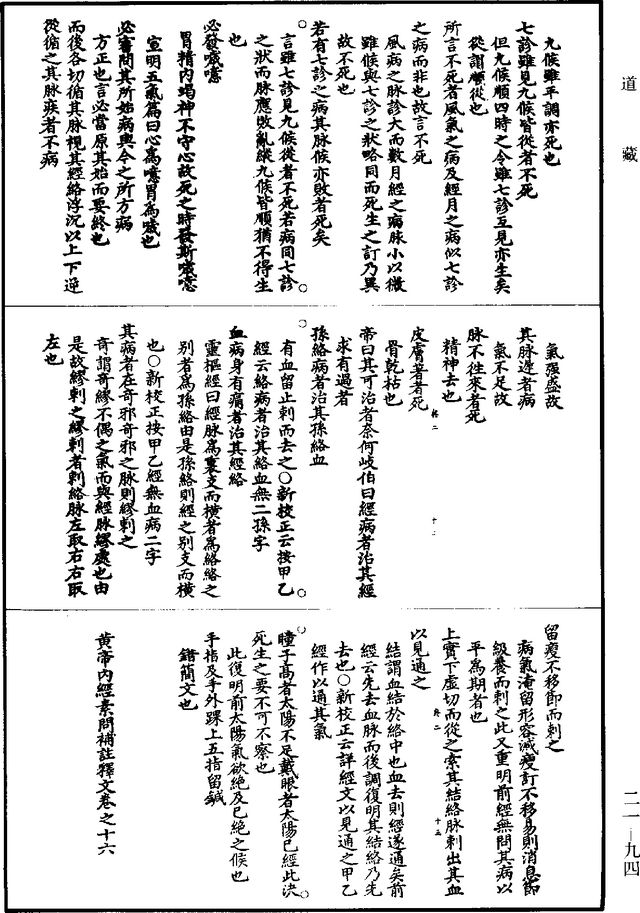 道藏
九候雖平調亦死也
七診雖見九候皆從者不死
但九候順四時之令雖七診互見亦生矣
從謂順從也
所言不死者風氣之病及經月之病似七診
之病而非也故言不死
風病之脉診大而數月經之病脉小以微
雖候與七診之狀略同而死生之訂乃異
故不死也
若有七診之病其脉候亦敗者死矣
言雖七診見九候從者不死若病同七診
之狀而脉應敗亂縱九候皆順猶不得生
也
必發噦噫
胃精內竭神不守心故死之時發斯噦噫
宣明五氣篇曰心為噫胃為噦也
必審問其所始病與今之所方病
方正也言必當原其始而要終也
而後各切循其脉視其經絡浮沉以上下逆
從循之其脉疾者不病
氣强盛故
其脉遲者病
氣不足故
脉不往來者死
精神去也
皮膚著者死
骨乾枯也
帝曰其可治者奈何岐伯曰經病者治其經
求有過者
孫絡病者治其孫絡血
有血留止刺而去之○新校正云按甲乙
經云絡病者治其絡血無二孫字
血病身有痛者治其經絡
靈樞經曰經脉為裏支而橫者為絡絡之
別者為孫絡由是孫絡則經之別支而橫
也○新校正按甲乙經無血病二字
其病者在奇邪奇邪之脉則繆刺之
奇謂奇繆不偶之氣而與經脉繆處也由
是故繆刺之繆刺者刺絡脉左取右右取
左也
留瘦不移節而刺之
病氣淹留形容減瘦訂不移易則消息節
級養而刺之此又重明前經無問其病以
平為期者也
上實下虛切而從之索其結絡脉刺出其血
以見通之
結謂血結於絡中也血去則經遂通矣前
經云先去血脉而後調復明其結絡乃先
去也○新校正云詳經文以見通之甲乙
經作以通其氣
瞳子高者太陽不足戴眼者太陽已經此決
死生之要不可不察也
此復明前太陽氣欲絕及已絕之候也
手指及手外踝上五指留鍼
錯簡文也
黃帝內經素問補註釋文卷之十六
二一—九四